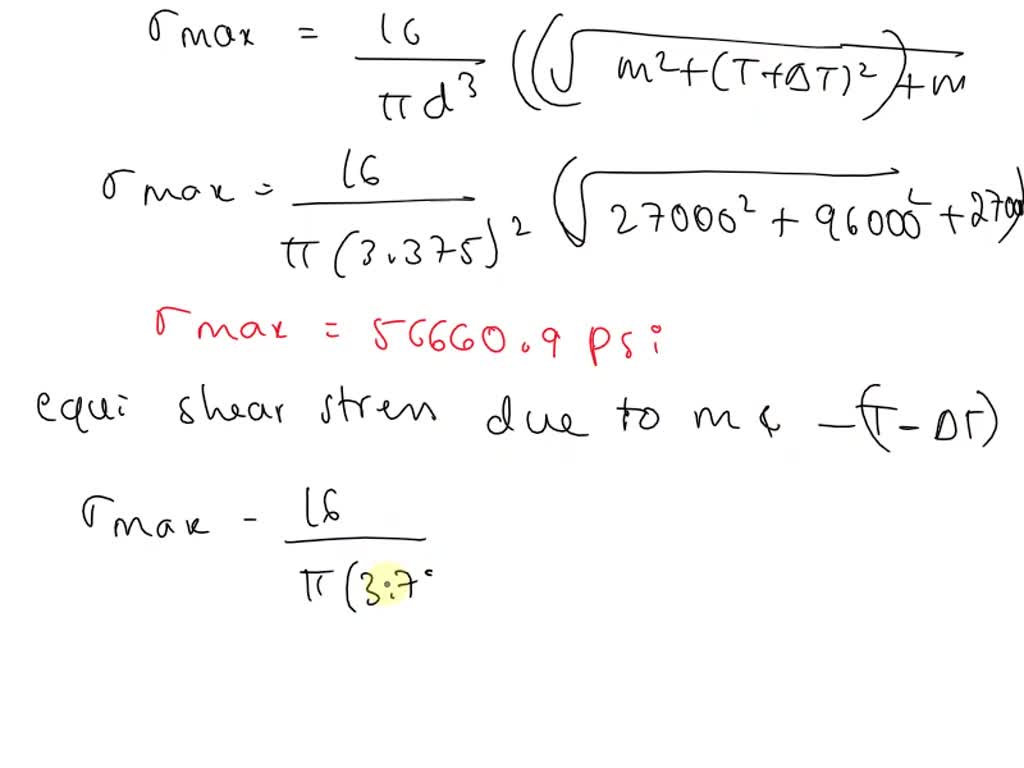 σmax = 16/πd³ ((√m²+(T+ΔT)²)+m
σmax = 16/π(3.375)² (√27000²+96000²+27000)
σmax = 56660.9 psi
equi shear stress due to m & -(T-ΔT)
σmax - 16/π(3.7